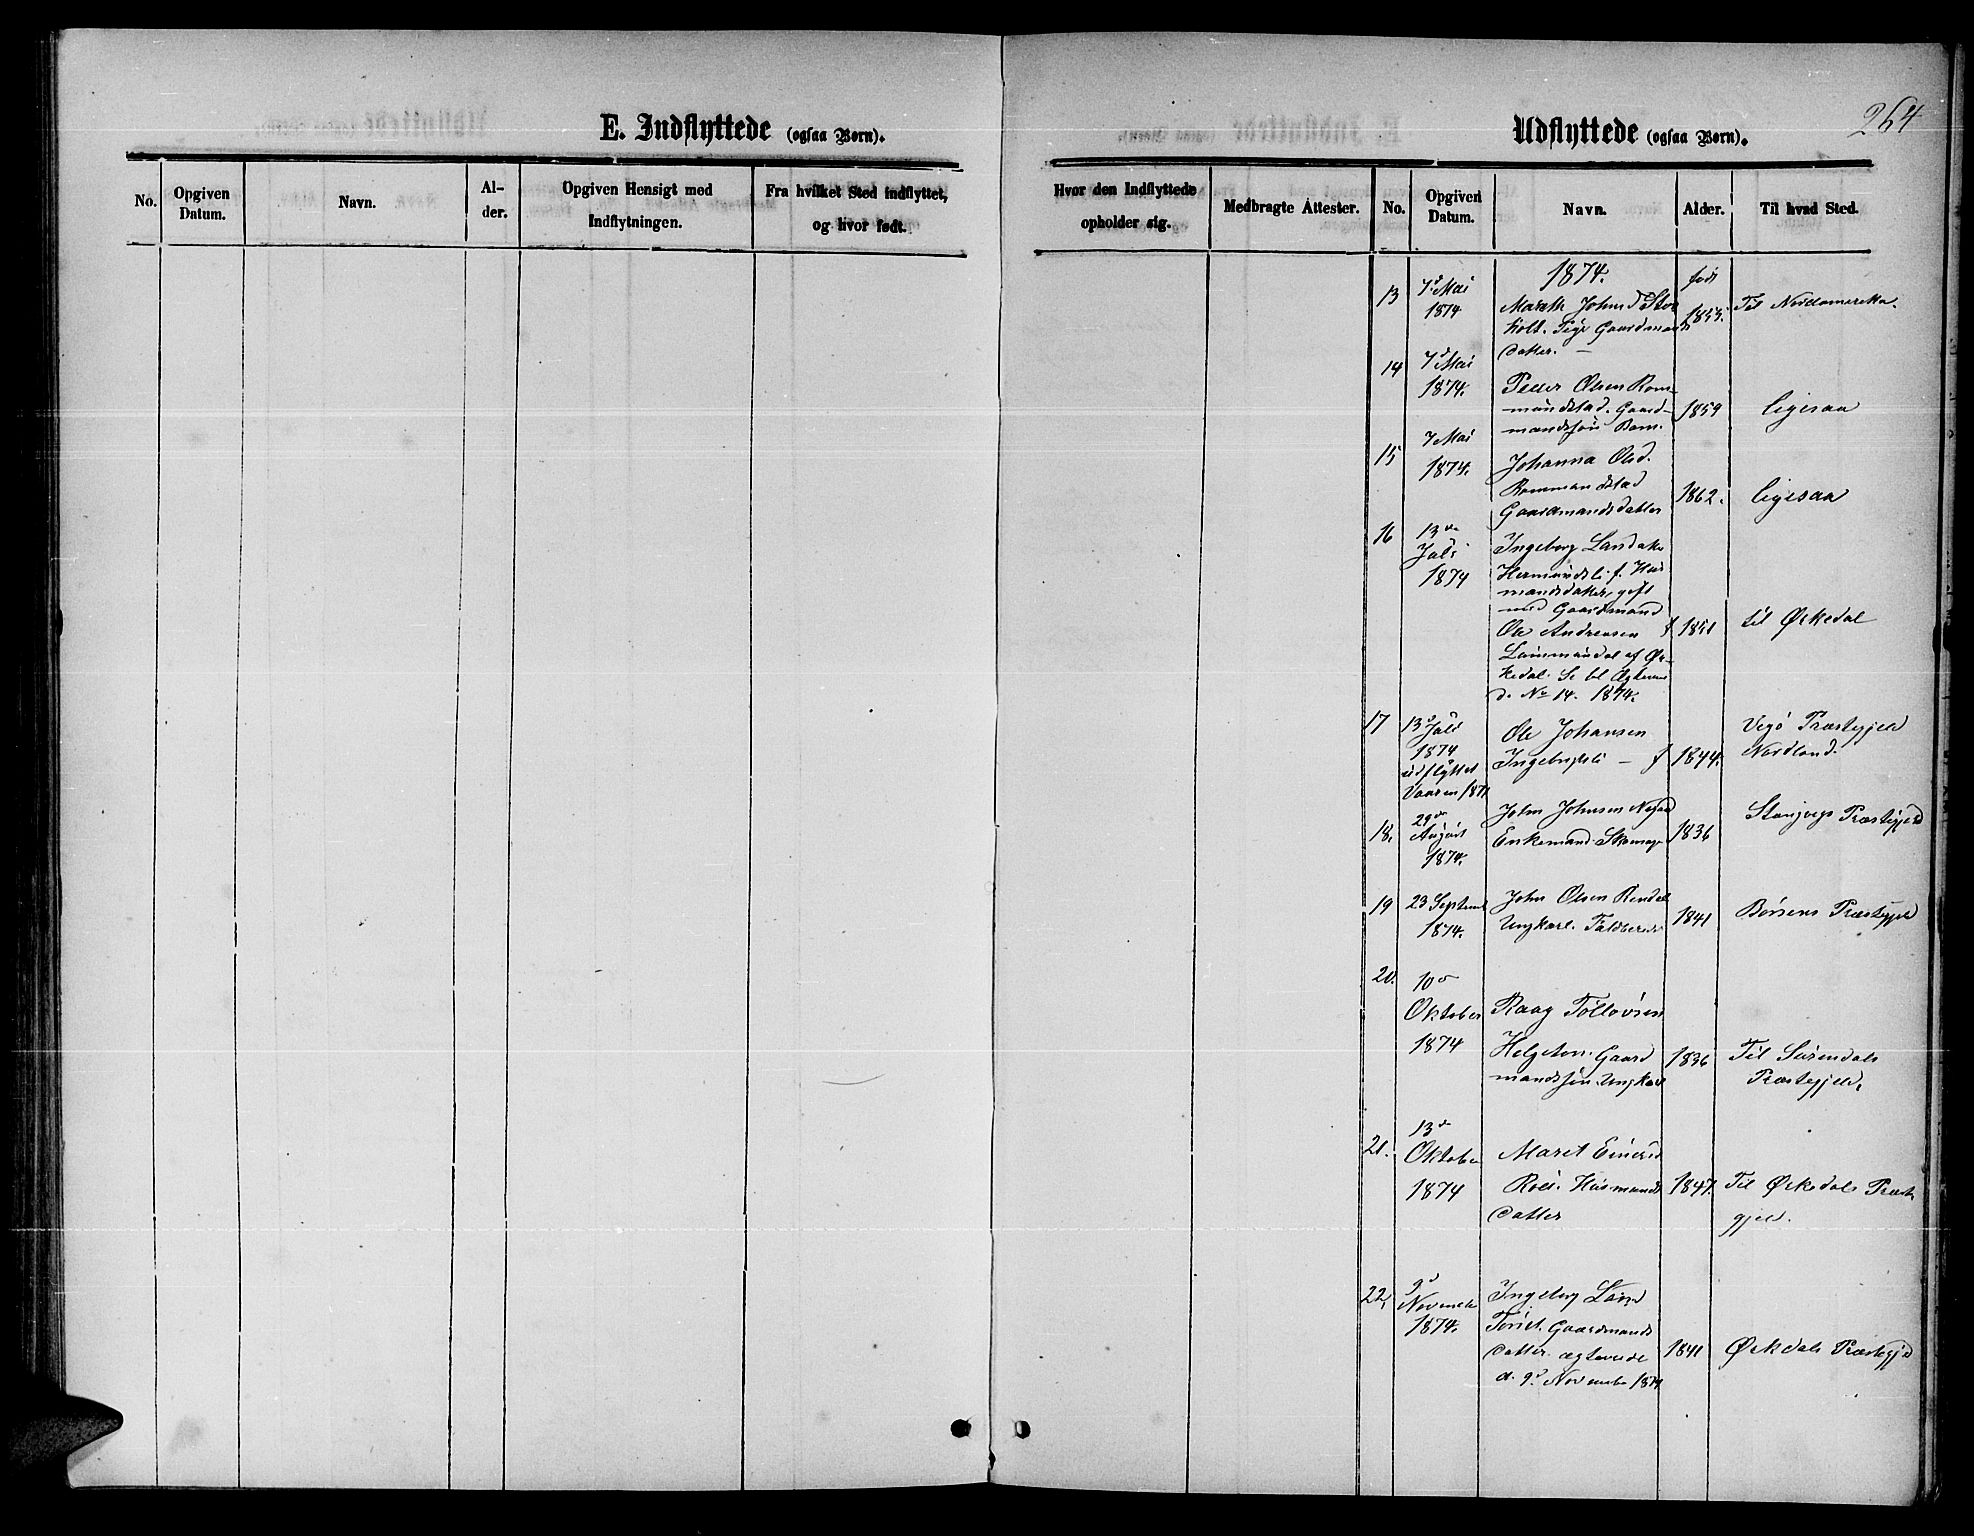 E. Indflyttede (ogsaa Børn).
No.
Opgiven Datum.
Navn.
Al-
der.
Opgiven Hensigt med
Indflytningen.
Fra hvilket Sted indflyttet,
og hvor født.
264
Udflyttede (ogsaa Børn).
Hvor den Indflyttede
opholder sig.
Medbragte Attester.
No.
Opgiven
Datum.
Navn.
Alder.
Til hvad Sted.
1874.
født
13 7d Mai 1874 Mareth Johnsd Stor
holt. Pige Gaardmands
datter. 1855. Til Nordamerika.
14 7d Mai 1874. Peder Olsen Rom-
mundstad. Gaard-
mandssøn Barn. 1859 ligesaa
15 7 Mai 1874. Johanna Olsd.
Rommundstad
Gaardmandsdatter 1862. ligesaa
16 13de Juli 1874 Ingeborg
Hermundsli f. Hus
mandsdatter, gift
med Gaardmand
Ole Andreasen f 1851 til Ørkedal
af Ør-
kedal. Se
d. No 14. 1874.
17 13d Juli 1874 udflyttet Vaaren 1871
Ole Johansen
Ingebrigtsli – f 1844. Vegø Præstegjeld
Nordland.
18. 29de August 1874. John Johnsen
Enkemand Skomager 1836 Stangvigs Præstegjeld
19 23 Septemb 1874. John Olsen Rindal
Ungkarl. 1841 Børsens Præstegjeld
20. 10de Oktober 1874 Haag Tollovsen
Helgeton. Gaard
mandssøn Ungkarl 1836 Til Surendals
Præstegjeld.
21. 13de Oktober 1874 Maret Einersd
Røen. Husmands
datter 1847. Til Ørkedals Præste
gjeld.
22. 9d Novembr 1874. Ingeborg Larsd
Gaardmands
datter. ægteviede
d. 9d November 1874 1841 Ørkdals Præstegjeld